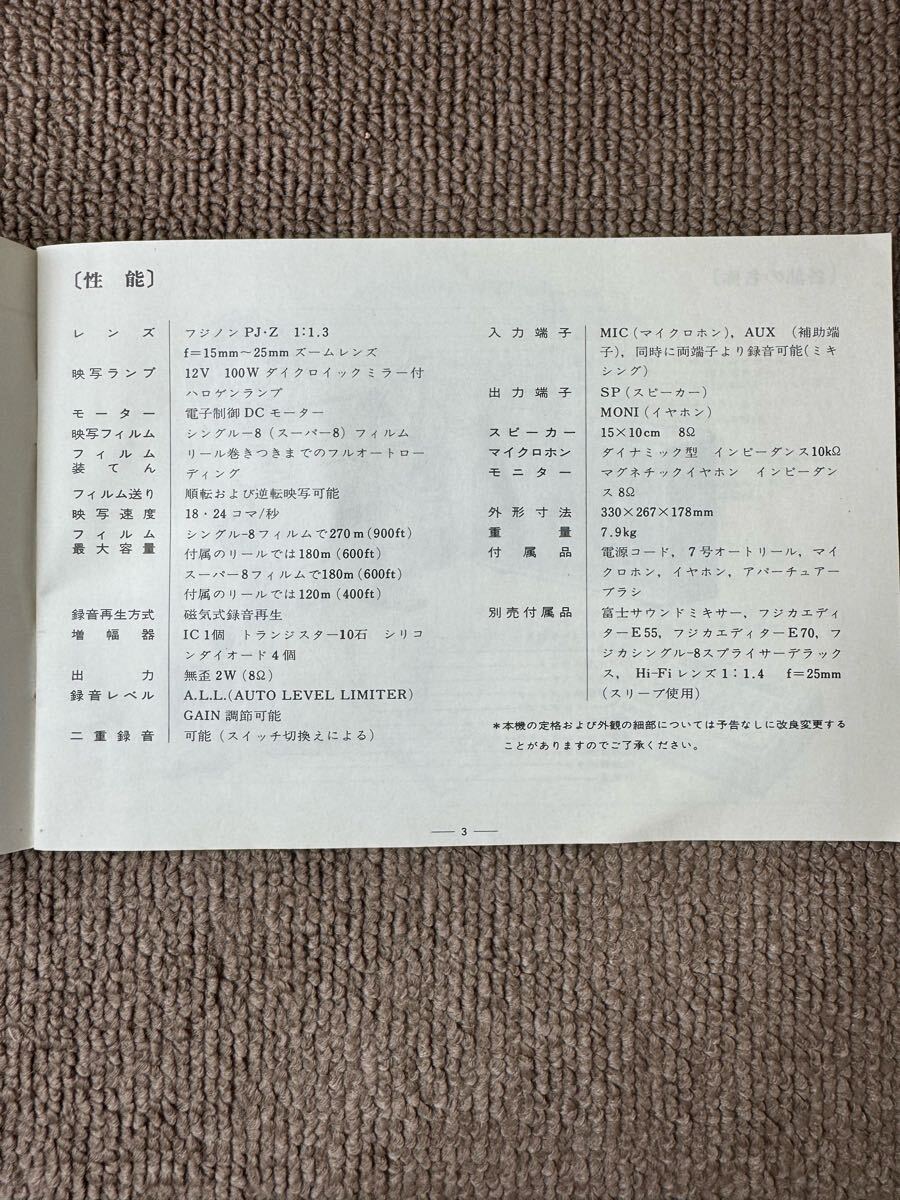 〔性 能〕
レンズ フジノン PJ・Z 1:1.3
f=15mm〜25mm ズームレンズ
映写ランプ 12V 100W ダイクロイックミラー付
ハロゲンランプ
モーター 電子制御 DC モーター
映写フィルム シングル−8（スーパー8）フィルム
フィルム装てん リール巻きつきまでのフルオートロー
ディング
フィルム送り 順転および逆転映写可能
映写速度 18・24 コマ/秒
フィルム最大容量 シングル-8フィルムで270m(900ft)
付属のリールでは180m(600ft)
スーパー8フィルムで180m(600ft)
付属のリールでは120m(400ft)
録音再生方式 磁気式録音再生
増幅器 IC1個 トランジスター10石 シリコ
ンダイオード4個
出力 無歪2W(8Ω)
録音レベル A.L.L.(AUTO LEVEL LIMITER)
GAIN 調節可能
二重録音 可能（スイッチ切換えによる）
入力端子 MIC(マイクロホン), AUX （補助端
子), 同時に両端子より録音可能(ミキ
シング)
出力端子 SP(スピーカー)
MONI(イヤホン)
スピーカー 15×10cm 8Ω
マイクロホン ダイナミック型 インピーダンス10kΩ
モニター マグネチックイヤホン インピーダン
ス8Ω
外形寸法 330×267×178mm
重量 7.9kg
付属品 電源コード, 7号オートリール, マイ
クロホン, イヤホン, アパーチュアー
ブラシ
別売付属品 富士サウンドミキサー, フジカエディ
ターE55, フジカエディターE70, フ
ジカシングル-8スプライサーデラック
ス, Hi-Fiレンズ1:1.4 f=25mm
(スリーブ使用)
＊本機の定格および外観の細部については予告なしに改良変更する
ことがありますのでご了承ください。
— 3 —